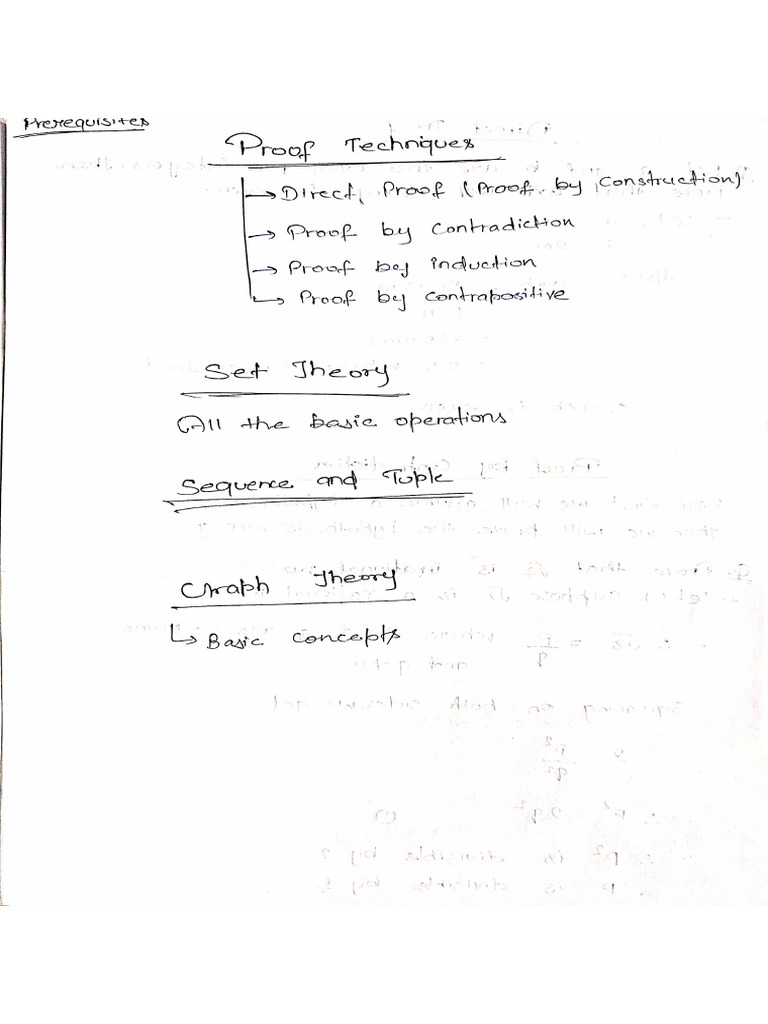 Prerequisites
Proof Techniques
→ Direct Proof (Proof by Construction)
→ Proof by Contradiction
→ Proof by induction
→ Proof by Contrapositive
Set Theory
All the basic operations
Sequence and Tuple
Graph Theory
↳ Basic Concepts